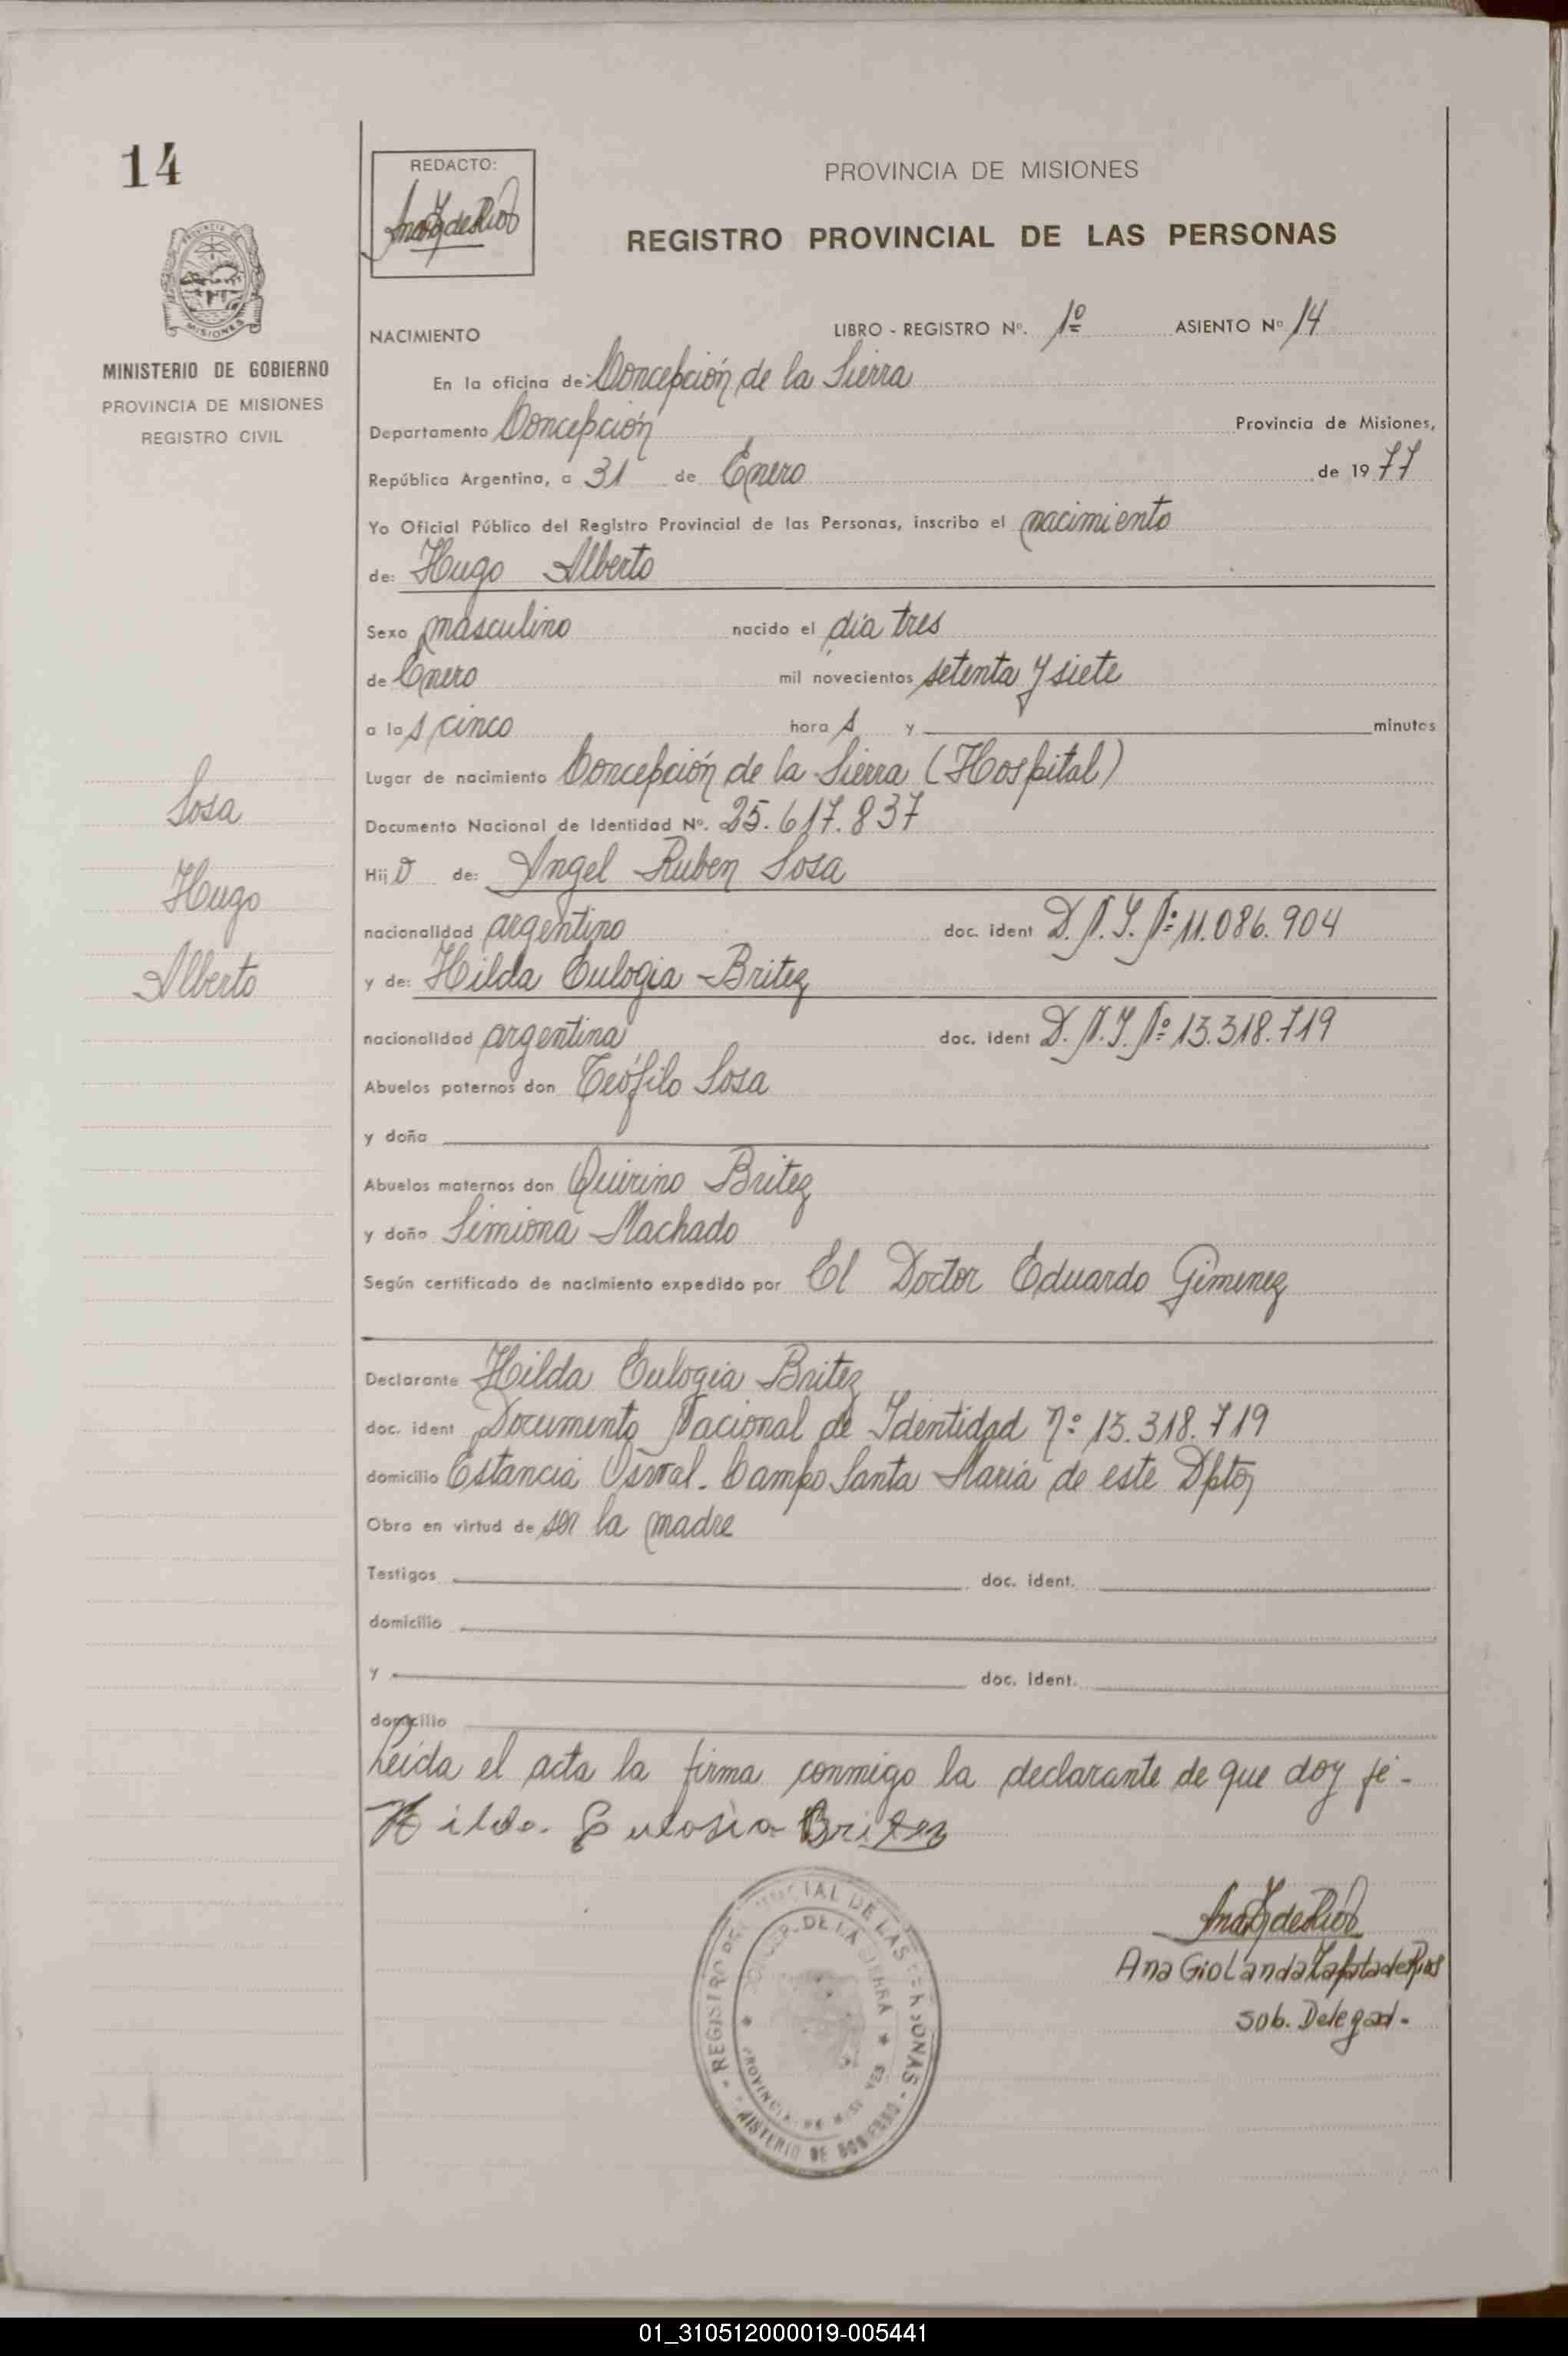 14
REDACTO:
PROVINCIA DE MISIONES
REGISTRO PROVINCIAL DE LAS PERSONAS
MISIONES
MINISTERIO DE GOBIERNO
PROVINCIA DE MISIONES
REGISTRO CIVIL
NACIMIENTO LIBRO - REGISTRO Nº. 1º ASIENTO Nº 14
En la oficina de: Concepción de la Sierra
Departamento Concepción Provincia de Misiones,
República Argentina, a 31 de Enero de 1977
Yo Oficial Público del Registro Provincial de las Personas, inscribo el nacimiento
de: Hugo Alberto
Sexo masculino nacido el día tres
de Enero mil novecientos setenta y siete
a las cinco horas y minutos
Lugar de nacimiento Concepción de la Sierra (Hospital)
Documento Nacional de Identidad Nº. 25.617.837
Hijo de: Angel Ruben Sosa
nacionalidad argentino doc. ident D.N.I. Nº 11.086.904
y de: Hilda Eulogia Britez
nacionalidad argentina doc. ident D.N.I. Nº 13.318.719
Abuelos paternos don Teófilo Sosa
y doña
Abuelos maternos don Quirino Britez
y doña Simiona Machado
Según certificado de nacimiento expedido por El Doctor Eduardo Gimenez
Declarante Hilda Eulogia Britez
doc. ident Documento Nacional de Identidad Nº 13.318.719
domicilio Estancia Campo Santa Maria de este Dpto
Obra en virtud de ser la madre
Testigos doc. ident.
domicilio
y doc. ident.
domicilio
Leida el acta la firma conmigo la declarante de que doy fé.-
Hilda Eulogia Britez
Sosa
Hugo
Alberto
REGISTRO PROVINCIAL DE LAS PERSONAS
CONCEP. DE LA SIERRA
PROVINCIA DE MISIONES
MINISTERIO DE GOBIERNO
Ana Giolanda Zapata de Rios
Sob. Delegad.
01_310512000019-005441